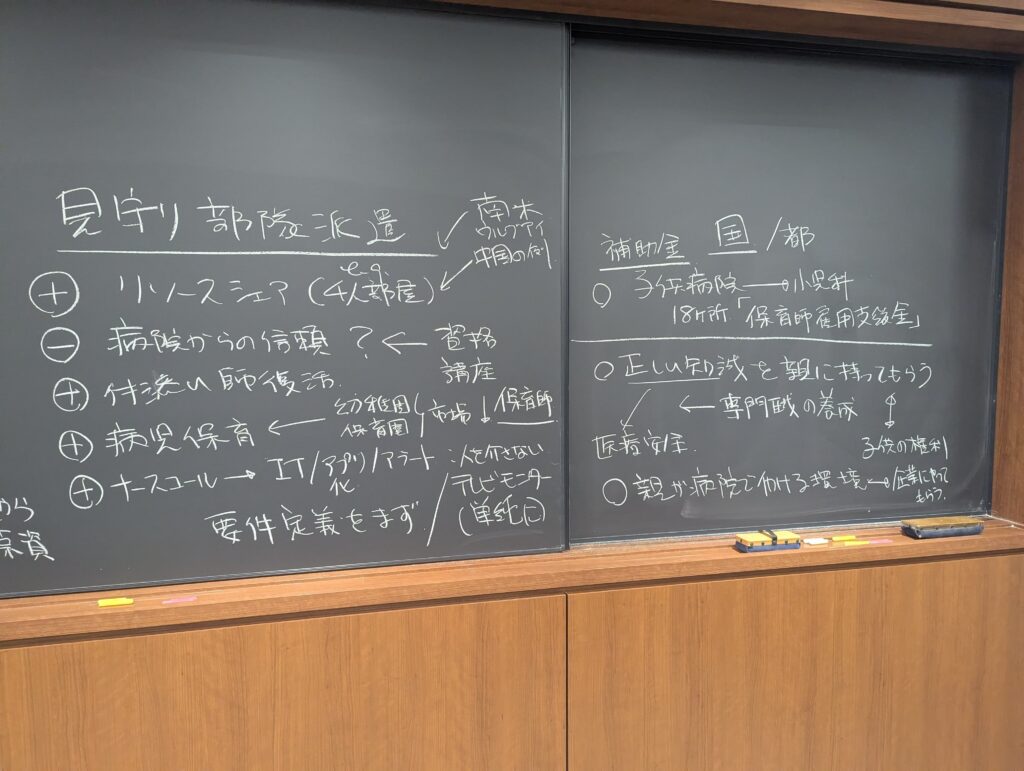 見守り部隊派遣
南米
ウルグアイ
中国の例
⊕ リソースシェア (4人部屋)
e.g
⊖ 病院からの信頼 ? ← 資格
講座
⊕ 付添い師復活
⊕ 病児保育 ← 幼稚園
保育園 / 市場 ↓ 保育師
⊕ ナースコール → IT/アプリ/アラート
化
:人を介さない
テレビモニター
(単純に)
要件定義をまず /
から
資
補助金 国/都
○ 子供病院 → 小児科
18ヶ所「保育師雇用支援金」
○ 正しい知識を親に持ってもらう
← 専門職の養成
医療安全
子供の権利
○ 親が病院で働ける環境 → 企業に
もらう